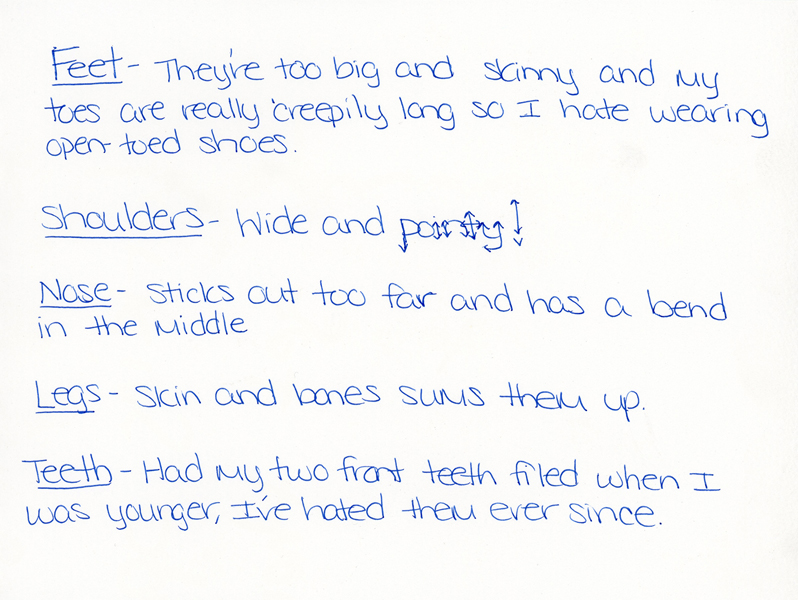 Feet - They're too big and skinny and my
toes are really creepily long so I hate wearing
open-toed shoes.
Shoulders - Wide and pointy!
Nose - sticks out too far and has a bend
in the middle
Legs - skin and bones sums them up.
Teeth - Had my two front teeth filed when I
was younger, I've hated them ever since.